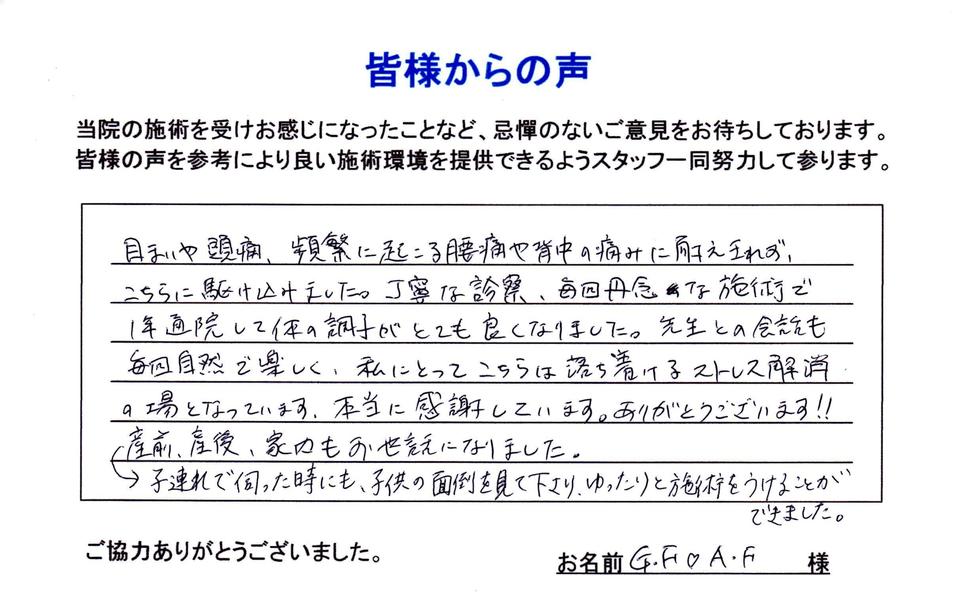 皆様からの声
当院の施術を受けお感じになったことなど、忌憚のないご意見をお待ちしております。
皆様の声を参考により良い施術環境を提供できるようスタッフ一同努力して参ります。
目まいや頭痛、頻繁に起こる腰痛や背中の痛みに耐え切れず、
こちらに駆け込みました。丁寧な診察、毎回丹念な施術で
1年通院して体の調子がとても良くなりました。先生との会話も
毎回自然で楽しく、私にとってこちらは落ち着けるストレス解消
の場となっています、本当に感謝しています。ありがとうございます!!
産前、産後、家内もお世話になりました。
→子連れで伺った時にも、子供の面倒を見て下さり、ゆったりと施術をうけることが
できました。
ご協力ありがとうございました。
お名前 G.F♡A.F 様